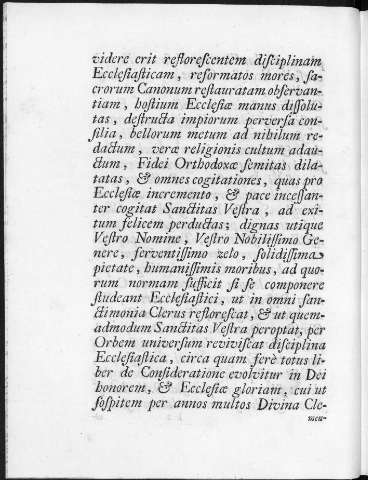 videre erit reflorescentem disciplinam
Ecclesiasticam, reformatos mores, sa-
crorum Canonum restauratam observan-
tiam, hostium Ecclesiæ manus dissolu-
tas, destructa impiorum perversa con-
silia, bellorum metum ad nihilum re-
dactum, veræ religionis cultum adau-
ctum, Fidei Orthodoxæ semitas dila-
tatas, & omnes cogitationes, quas pro
Ecclesiæ incremento, & pace incessan-
ter cogitat Sanctitas Vestra, ad exi-
tum felicem perductas; dignas utique
Vestro Nomine, Vestro Nobilissimo Ge-
nere, ferventissimo zelo, solidissima
pietate, humanissimis moribus, ad quo-
rum normam sufficit si se componere
studeant Ecclesiastici, ut in omni san-
ctimonia Clerus reflorescat, & ut quem-
admodum Sanctitas Vestra peroptat, per
Orbem universum reviviscat disciplina
Ecclesiastica, circa quam ferè totus li-
ber de Consideratione evolvitur in Dei
honorem, & Ecclesiæ gloriam, cui ut
sospitem per annos multos Divina Cle-
men-